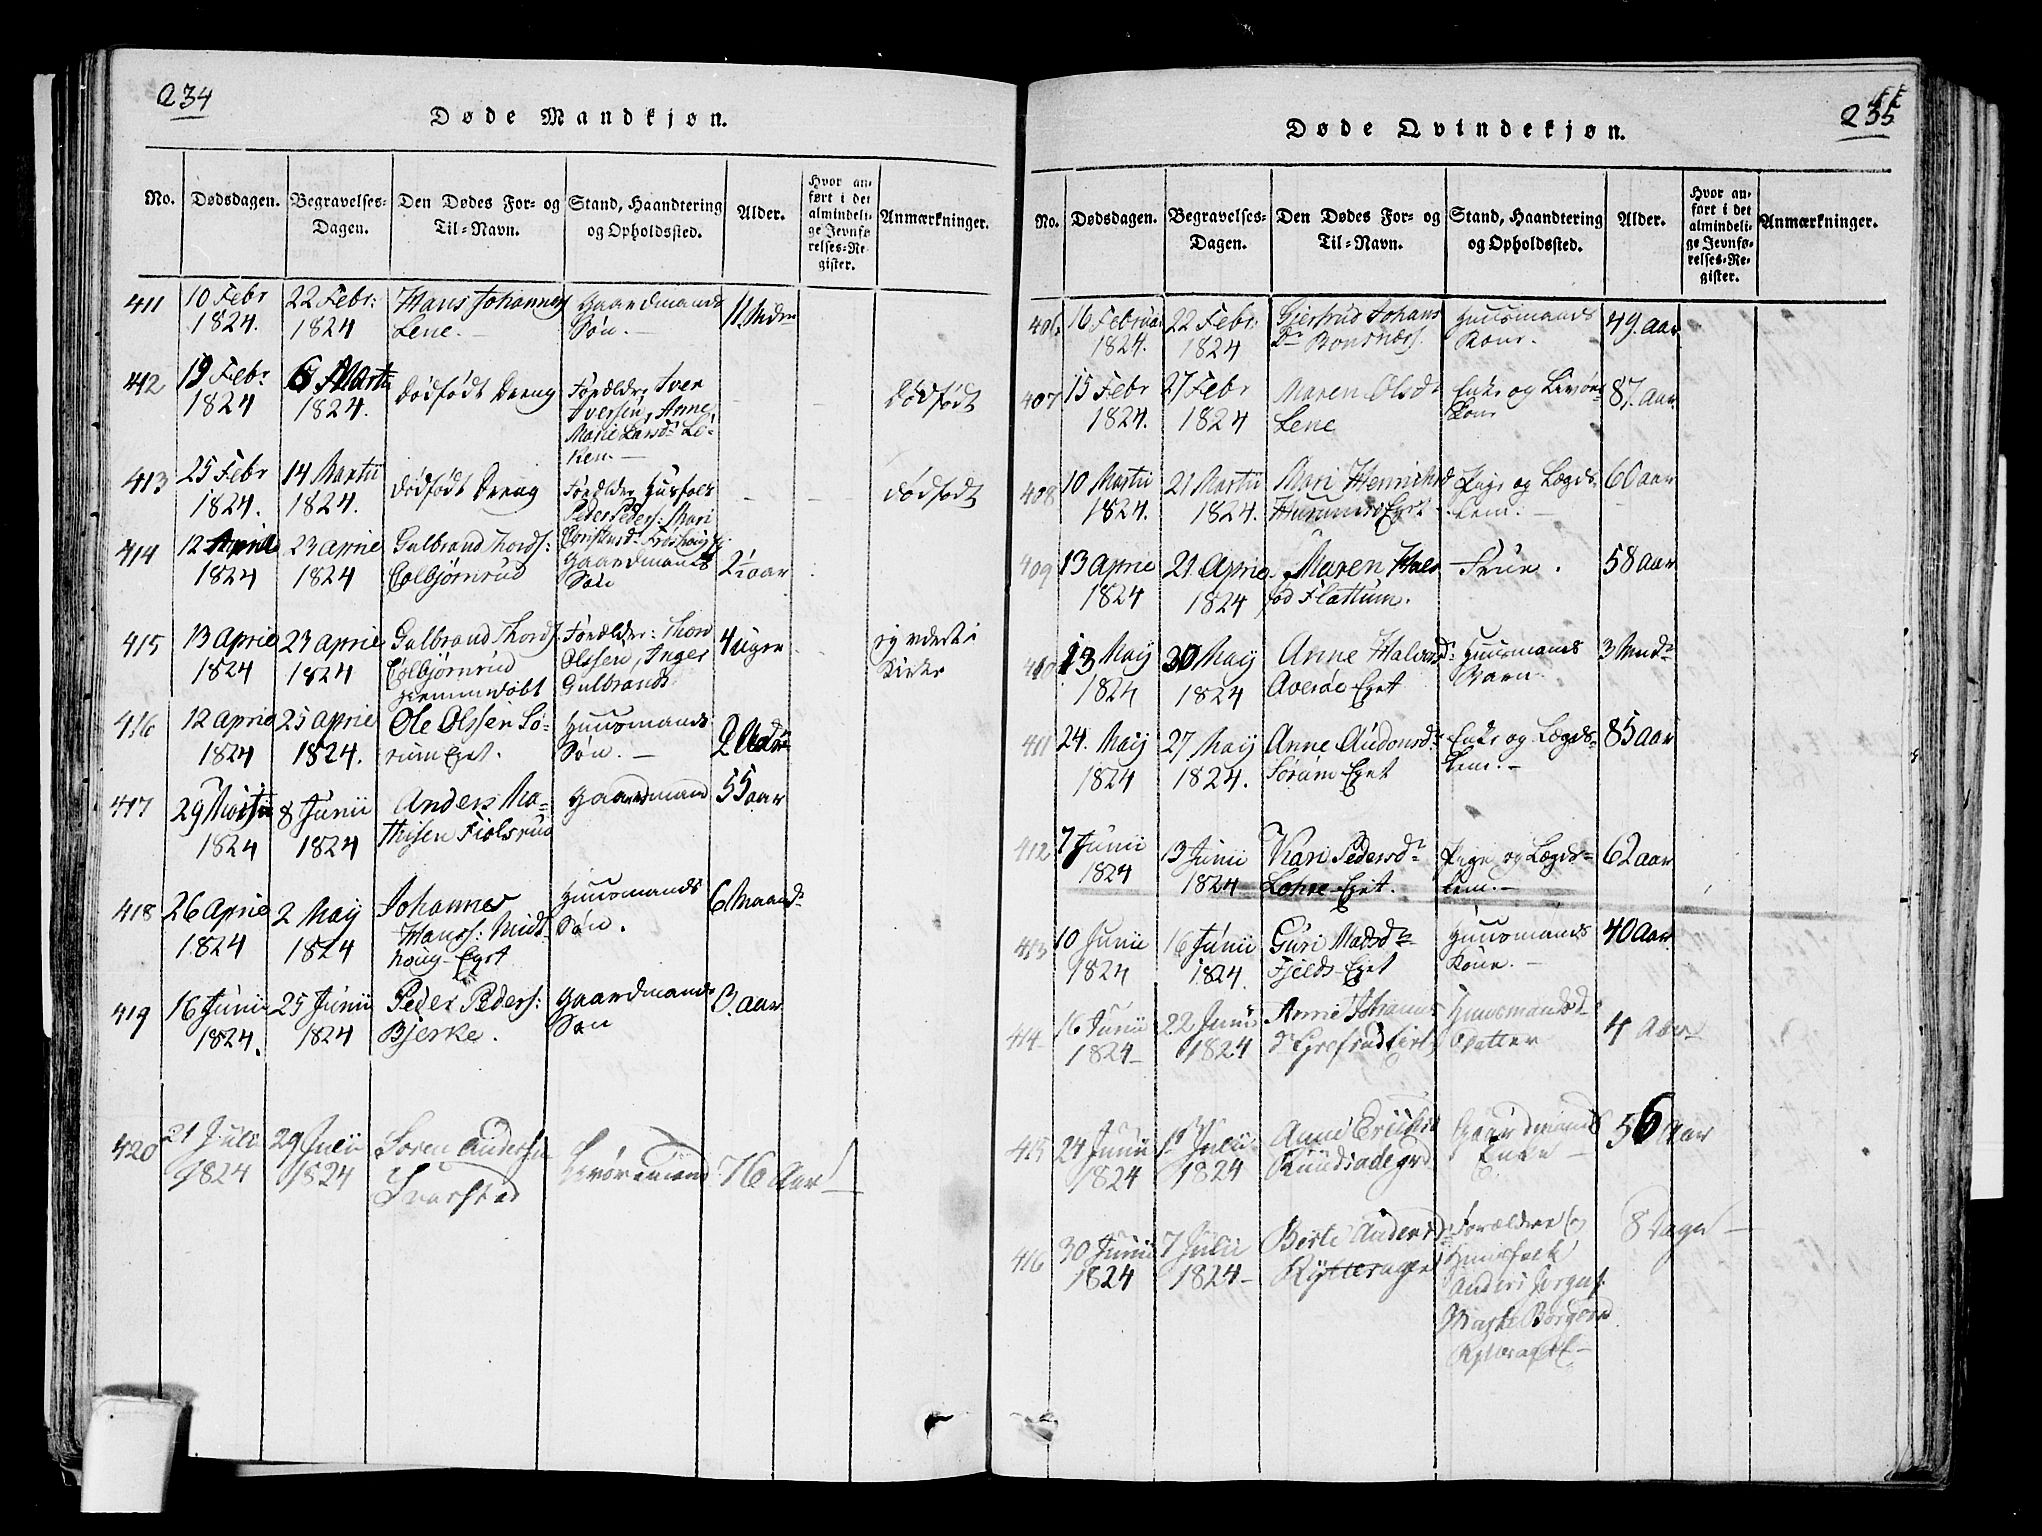 234
Døde Mandkjøn.
No.
Dødsdagen.
Begravelses-
Dagen.
Den Dødes For- og
Til-Navn.
Stand, Haandtering
og Opholdssted.
Alder.
Hvor an-
ført i det
almindeli-
ge Jevnfø-
relses-Re-
gister.
Anmærkninger.
411
10 Febr
1824.
22 Febr:
1824
Hans Johannes
Lene.
Gaardmands
Søn.
412
19 Febr
1824
6 Martii
1824.
dødfødt Dreng
Forældre, Iver
Iversen, Anne
Marie Larsd. Lø-
ken.
dødfødt
413
25 Febr
1824.
14 Martii
1824.
dødfødt Dreng
Forældre Huusfolk
Peder Peders: Mari
dødfødt
414
12 April
1824
23 April
1824
Gulbrand Thords:
Colbjørnrud
Gaardmands
Søn
415
13 April
1824
23 April
1824
Gulbrand Thords
Colbjørnrud
hjemmedøbt
Forældre: Thord
Olssen, Inger
Gulbrands
4 uger
416
12 April
1824
25 April
1824.
Ole Olssen Sø-
rum Eyet.
Huusmands
Søn.
417
1824
8 Junii
1824
Anders Ma-
thisen Fiolsrud
Gaardmand
55 aar
418
26 April
1824
2 Maij
1824
Johannes
Hanss: Midt-
houg-Eyet
Huusmands
Søn.
6 Maand
419
16 Junii
1824.
25 Junii
1824
Peder Peders:
Bjerke.
Gaardmands
Søn
3 aar
420
21 Juli
1824
29 Julii
1824
Søren Andersen
Svarstad
Livøremand
76 Aar
235
Døde Qvindekjøn.
No.
Dødsdagen.
Begravelses-
Dagen.
Den Dødes For- og
Til-Navn.
Stand, Haandtering
og Opholdssted.
Alder.
Hvor an-
ført i det
almindeli-
ge Jevnfø-
relses-Re-
gister.
Anmærkninger.
406
16 Februar
1824.
22 Febr:
1824
Giertrud Johans
Dr Bonsnæs.
Huusmands
Kone.
49. aar
407
15 Febr
1824.
27 Febr
1824
Maren Olsd
Lene
Enke og Livøre
Kone
87. aar
408
10 Martii
1824.
21 Martii
1824.
Mari
Eyet
Pige og Lægds-
Lem.
60 aar
409
13 April
1824
21 April
1824
Maren
fød Flattum.
Frue.
58 aar
410
13 Maij
1824
30 Maij
1824
Anne Halvorsd:
Averøe Eyet
Huusmands
Barn
3 Mnd
411
24. Maij
1824
27 Maij
1824.
Anne Audonsd:
Sørum Eyet
Enke og Lægds-
Lem.
85 aar
412
7 Junii
1824
13 Junii
1824
Kari Pedersd
Lohre-Eyet.
Pige og Lægds-
Lem.
62 aar
413
10 Junii
1824
16 Junii
1824.
Guri Madsd
Fjelds-Eyet
Huusmands
Kone.
40 aar
414
16 Junii
1824
22 Junii
1824
Anne Johannes
Huusmands
Datter
4 Aar
415
24 Junii
1824
1st Julii
1824
Anne Erichsd
Gaardmands
Enke
56 Aar
416
30 Junii
1824
7 Julii
1824
Berte Andersd
Rytterager
Forældre
Huusfolk
Anders Jørgens.
8 Dage